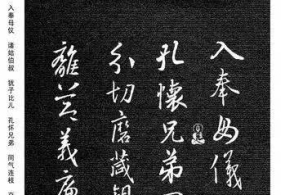 入奉母儀
孔懷兄弟同
分切磨箴規
離節義廉
入奉母仪　诸姑伯叔　犹子比儿　孔怀兄弟　同气连枝